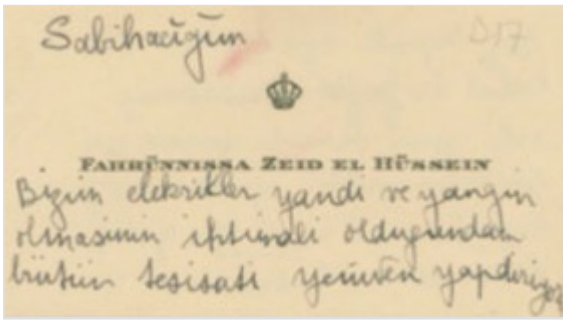 Sabihacığım
D17
FAHRÜNNISSA ZEID EL HÜSSEIN
Bizim elekrikler yandı ve yangın
olmasının ihtimali olduğundan
bütün tesisatı yeniden yapdırıyor